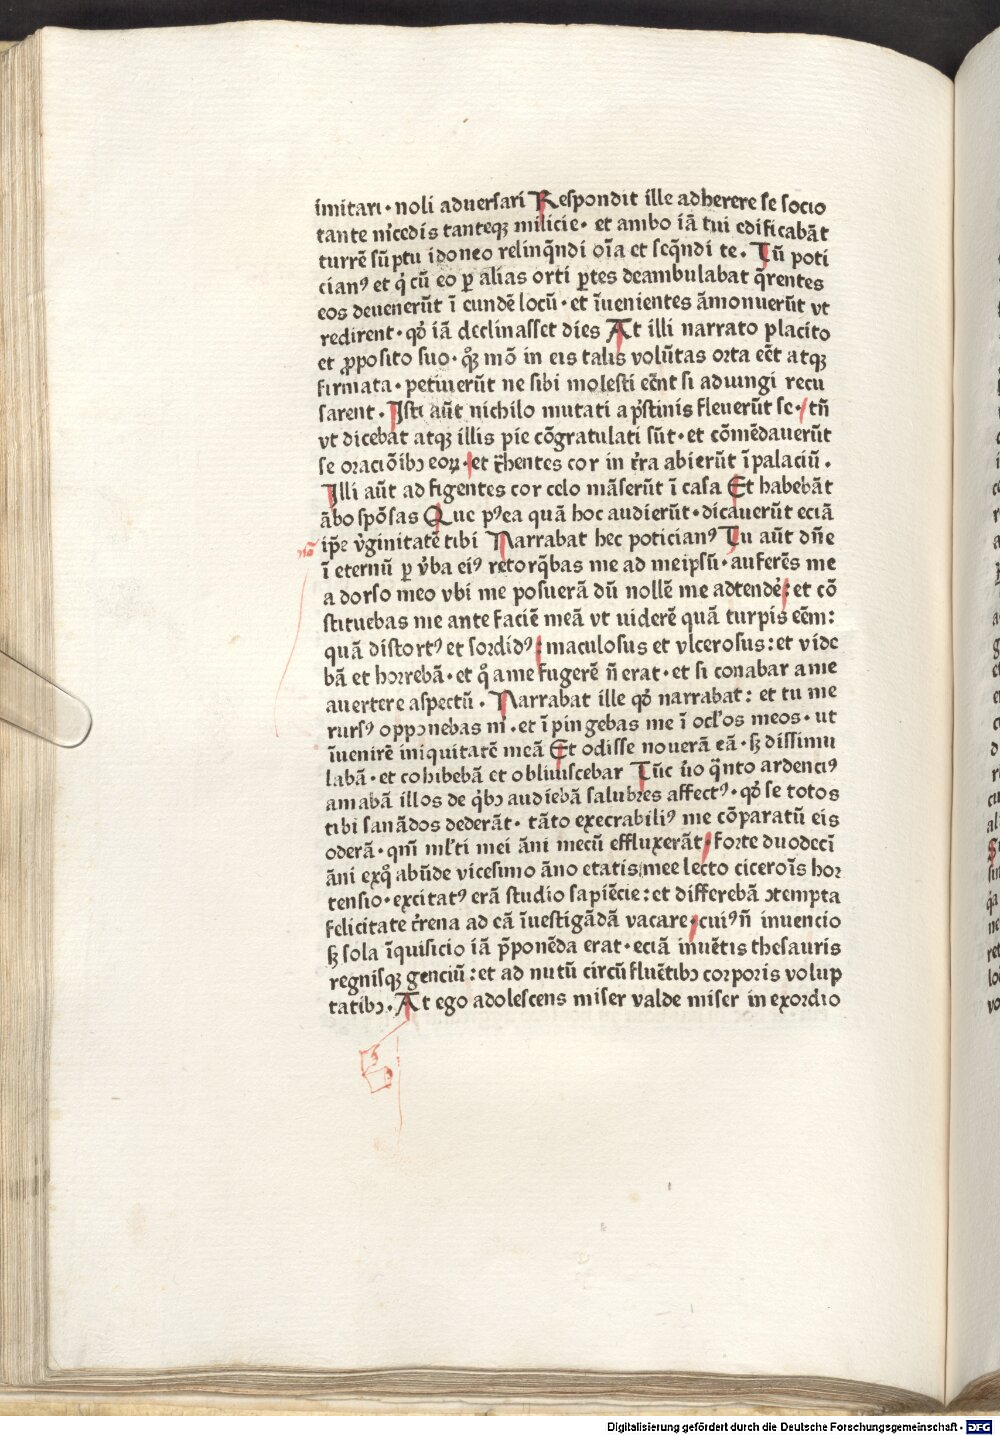 imitari · noli aduersari Respondit ille adherere se socio
tante m̄cedis tanteqꝫ milicie · et ambo iā tui edificabāt
turrē sūptu idoneo relinq̄ndi oīa et seq̄ndi te . Tū poti
cianꝰ et q̇ cū eo ꝑ alias orti ꝑtes deambulabat q̄rentes
eos deuenerūt ī eundē locū · et īuenientes āmonuerūt vt
redirent · qƀ iā declinasset dies At illi narrato placito
et ꝓposito suo · qꝫ mō in eis talis volūtas orta eēt atqꝫ
firmata · petiuerūt ne sibi molesti eēnt si adiungi recu
sarent . Isti aūt nichilo mutati a p̄stinis fleuerūt se · tn̄
vt dicebat atqꝫ illis pie cōgratulati sūt · et cōmēdauerūt
se oraciōibꝫ eoꝝ · et tr̄hentes cor in tr̄a abierūt ī palaciū .
Illi aūt ad figentes cor celo māserūt ī casa Et habebāt
ābo spōsas Que pꝰea quā hoc audierūt · dicauerūt eciā
ip̄e v̄ginitatē tibi Narrabat hec poticianꝰ Tu aūt dn̄e
ī eternū ꝑ v̄ba eiꝰ retorq̄bas me ad meipsū · auferēs me
a dorso meo vbi me posuerā dū nollē me adtendē : et cō
stituebas me ante faciē meā vt uiderē quā turpis eēm :
quā distortꝰ et sordidꝰ : maculosus et vlcerosus : et vide
bā et horrebā · et q̊ a me fugerē n̄ erat · et si conabar a me
auertere aspectū . Narrabat ille qƀ narrabat : et tu me
rursꝰ opponebas m̄ . et ī pingebas me ī ocl'os meos · ut
īuenirē iniquitatē meā Et odisse nouerā eā · sꝫ dissimu
labā · et cohibebā et obliuiscebar Tūc ūo q̄nto ardenciꝰ
amabā illos de q̄bꝫ audiebā salubres affectꝰ · qƀ se totos
tibi sanādos dederāt · tāto execrabiliꝰ me cōparatū eis
oderā · qm̄ ml'ti mei āni mecū effluxerāt · forte duodecī
āni exq̊ abūde vicesimo āno etatis mee lecto ciceroīs hor
tensio · excitatꝰ erā studio sapiēcie : et differebā ↄtempta
felicitate tr̄rena ad eā īuestigādā vacare · cuiꝰ n̄ inuencio
sꝫ sola īquisicio iā p̄ponēda erat · eciā inuētis thesauris
regnisqꝫ genciū : et ad nutū circūfluētibꝫ corporis volup
tatibꝫ . At ego adolescens miser valde miser in exordio
Digitalisierung gefördert durch die Deutsche Forschungsgemeinschaft · DFG